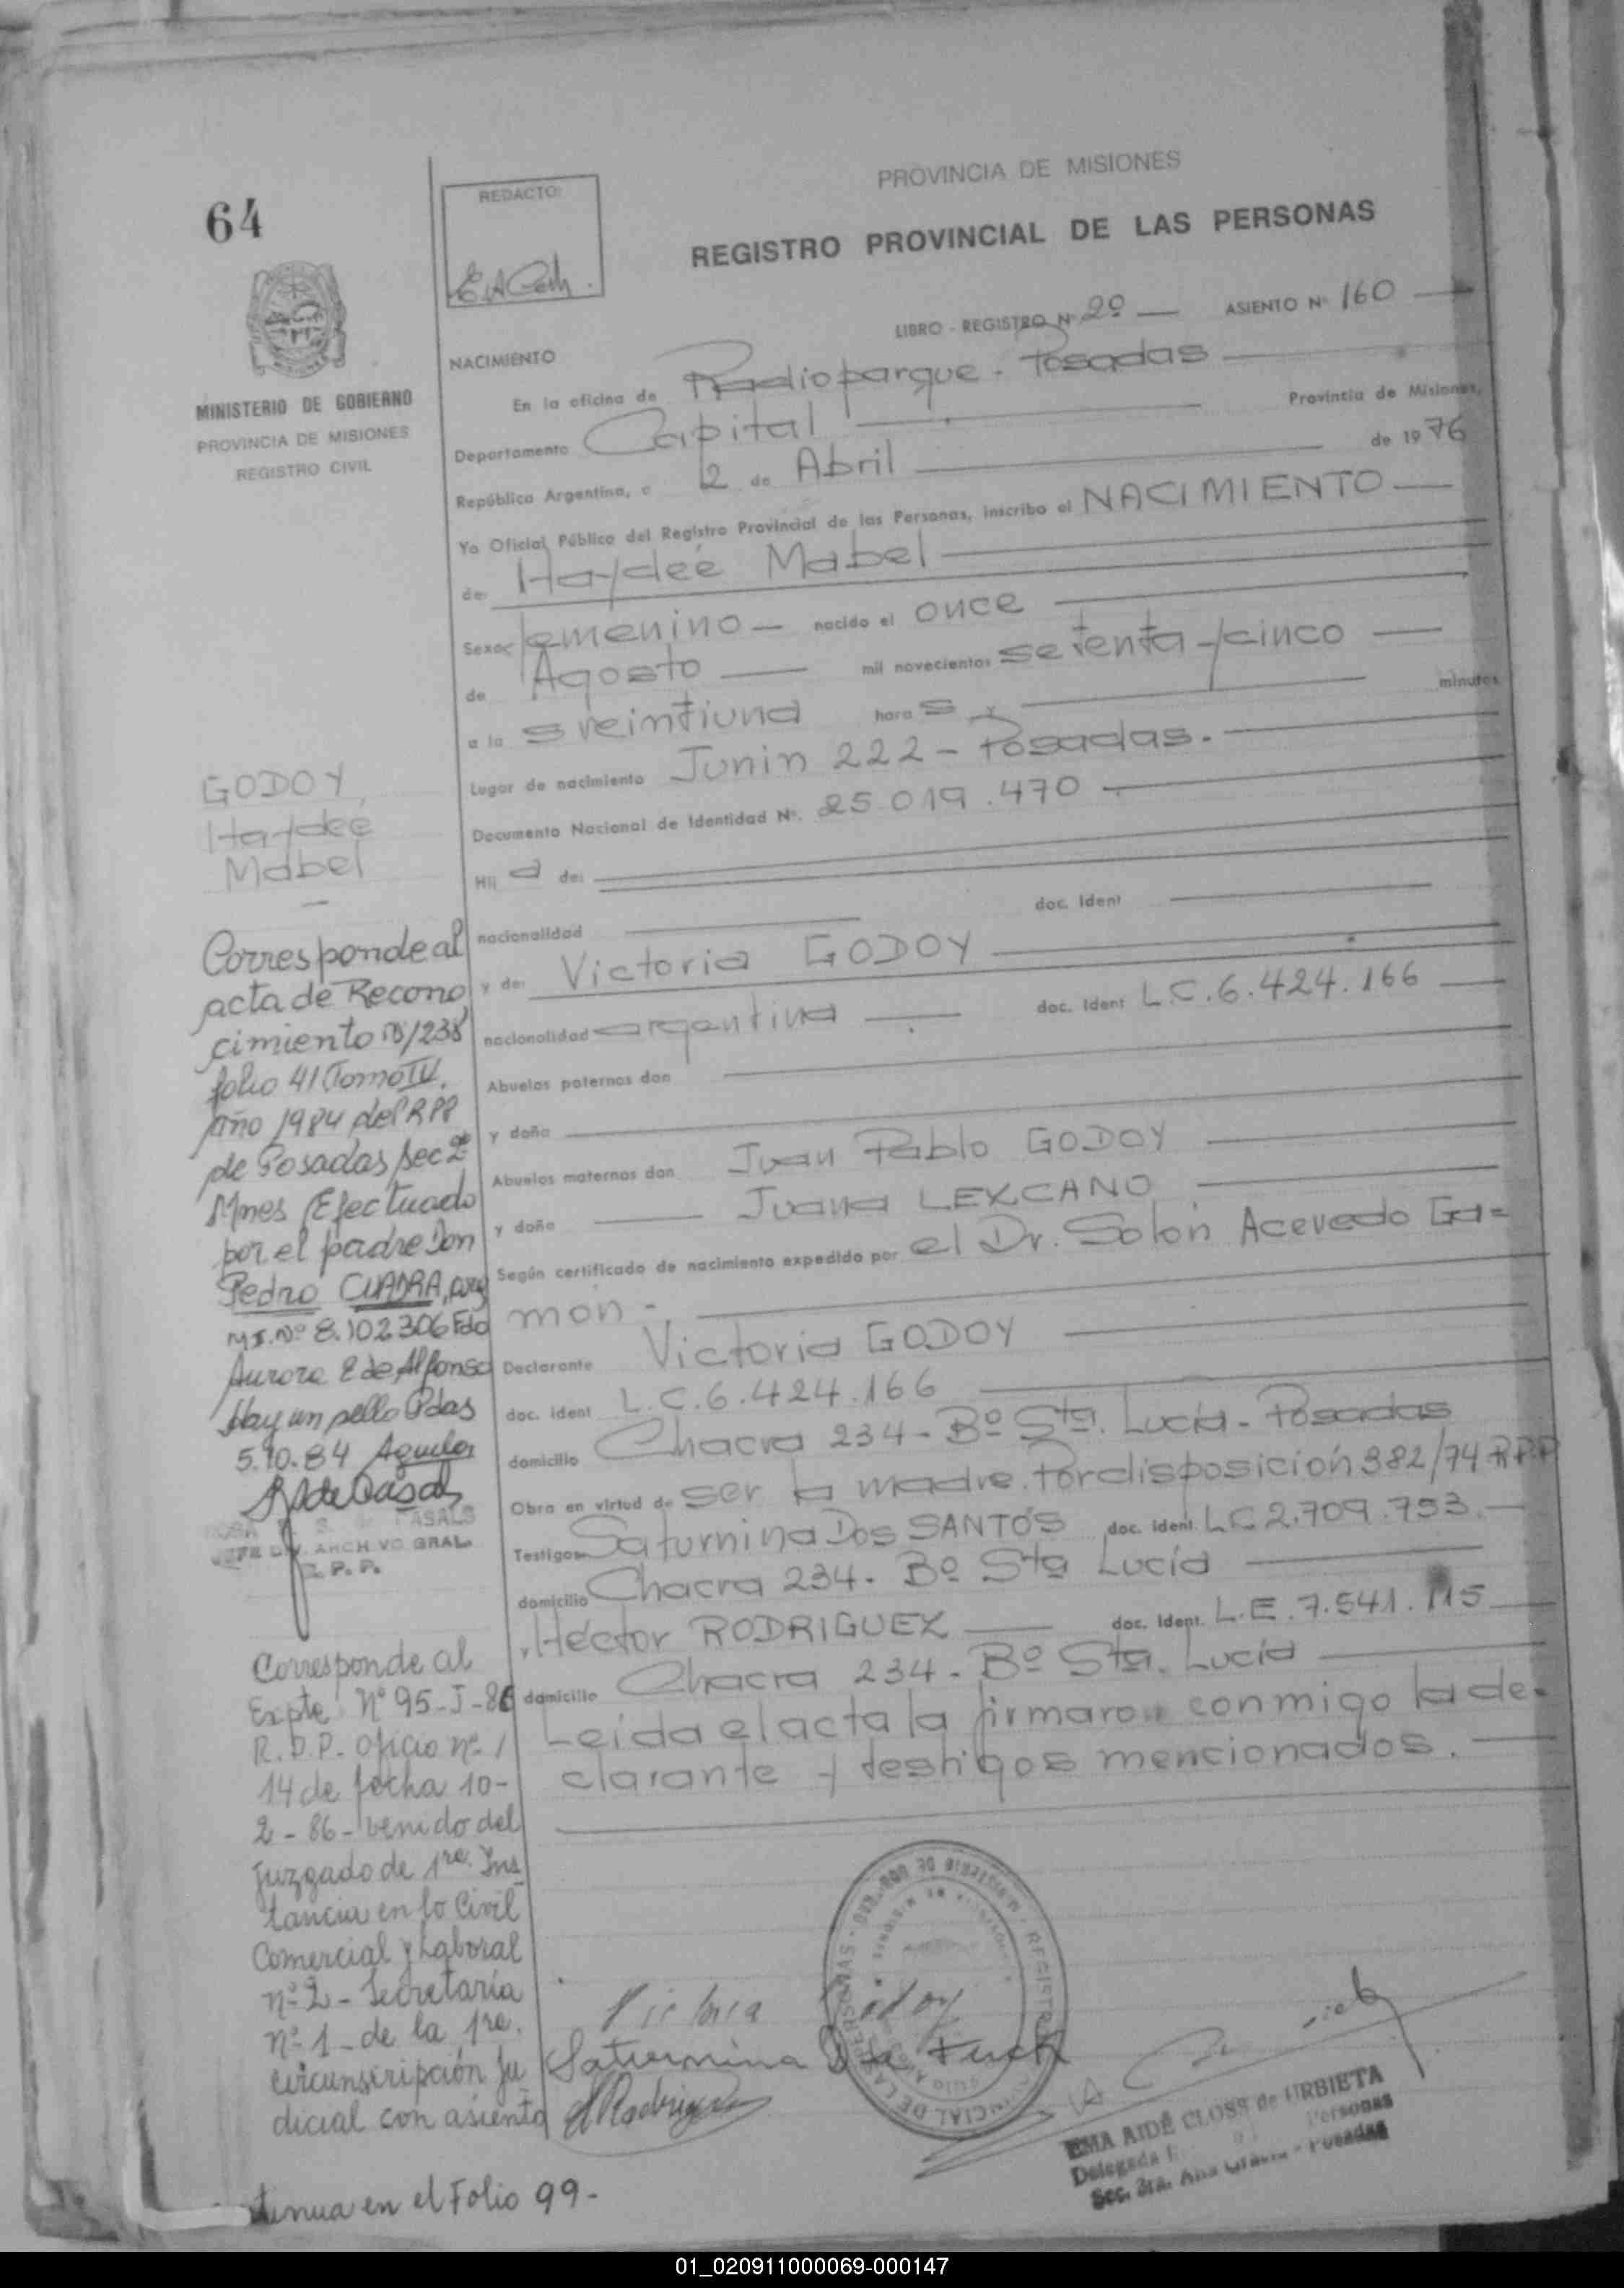 64
MINISTERIO DE GOBIERNO
PROVINCIA DE MISIONES
REGISTRO CIVIL
REDACTO:
PROVINCIA DE MISIONES
REGISTRO PROVINCIAL DE LAS PERSONAS
LIBRO - REGISTRO Nº 2º ASIENTO Nº 160
NACIMIENTO
En la oficina de Radioparque - Posadas
Departamento Capital Provincia de Misiones,
República Argentina, a 2 de Abril de 1976
Yo Oficial Público del Registro Provincial de las Personas, inscribo el NACIMIENTO
de: Haydée Mabel
Sexo: femenino nacido el once
de Agosto mil novecientos setenta y cinco
a la s veintiuna hora s y minutos
Lugar de nacimiento Junin 222 - Posadas.
Documento Nacional de Identidad Nº. 25.019.470
Hij a de:
nacionalidad doc. Ident
y de: Victoria GODOY
nacionalidad argentina doc. Ident L.C.6.424.166
Abuelos paternos don
y doña
Abuelos maternos don Juan Pablo GODOY
y doña Juana LEXCANO
Según certificado de nacimiento expedido por el Dr. Solón Acevedo Ga=
món -
Declarante Victoria GODOY
doc. ident L.C.6.424.166
domicilio Chacra 234 - Bº Sta. Lucía - Posadas
Obra en virtud de ser la madre. Por disposición 382/74 R.P.P
Testigos Saturnina Dos SANTOS doc. ident. L.C 2.709.753.
domicilio Chacra 234. Bº Sta Lucía
y Héctor RODRIGUEZ doc. Ident. L.E.7.541.115
domicilio Chacra 234 - Bº Sta. Lucía
Leida el acta la firmaron conmigo la de-
clarante y testigos mencionados.
GODOY,
Haydée
Mabel
Corresponde al
acta de Recono
cimiento Nº/238
folio 41 Tomo IV.
Año 1984 del R P P
de Posadas Sec 2ª
Mnes Efectuado
por el padre Don
Pedro CUADRA, arg
M.I. Nº 8.102306 Fdo
Aurora E de Alfonso
Hay un sello Pdas
5.10.84 Aguilar
CASALS
JEFE DIV. ARCHIVO GRAL.
R. P. P.
Corresponde al
Expte Nº 95-J-86
R.P.P. Oficio nº 1
14 de fecha 10-
2-86- venido del
Juzgado de 1ra. Ins
tancia en lo Civil
Comercial y Laboral
nº 2 - Secretaría
nº 1 - de la 1ra.
circunscripción Ju
dicial con asiento
Continua en el Folio 99-
Victoria Godoy
Saturnina
H Rodriguez
EMA AIDÉ CLOSS de URBIETA
Delegada
Personas
Sec. 3ra. - Posadas
01_020911000069-000147